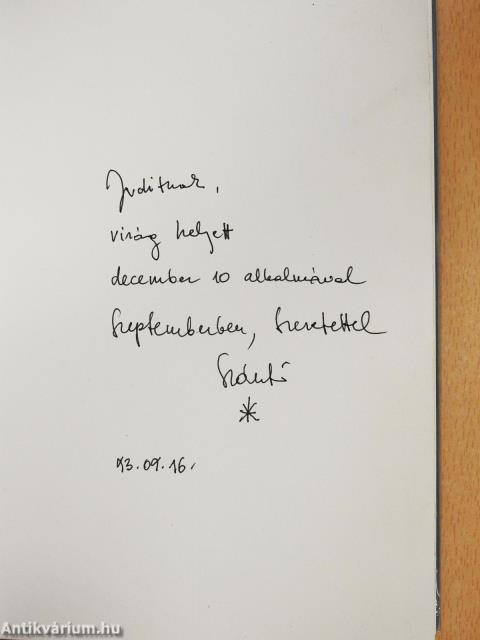 Juditnak,
virág helyett
december 10 alkalmával
Szeptemberben, Szeretettel
Szántó
*
93.09.16.
Antikvárium.hu